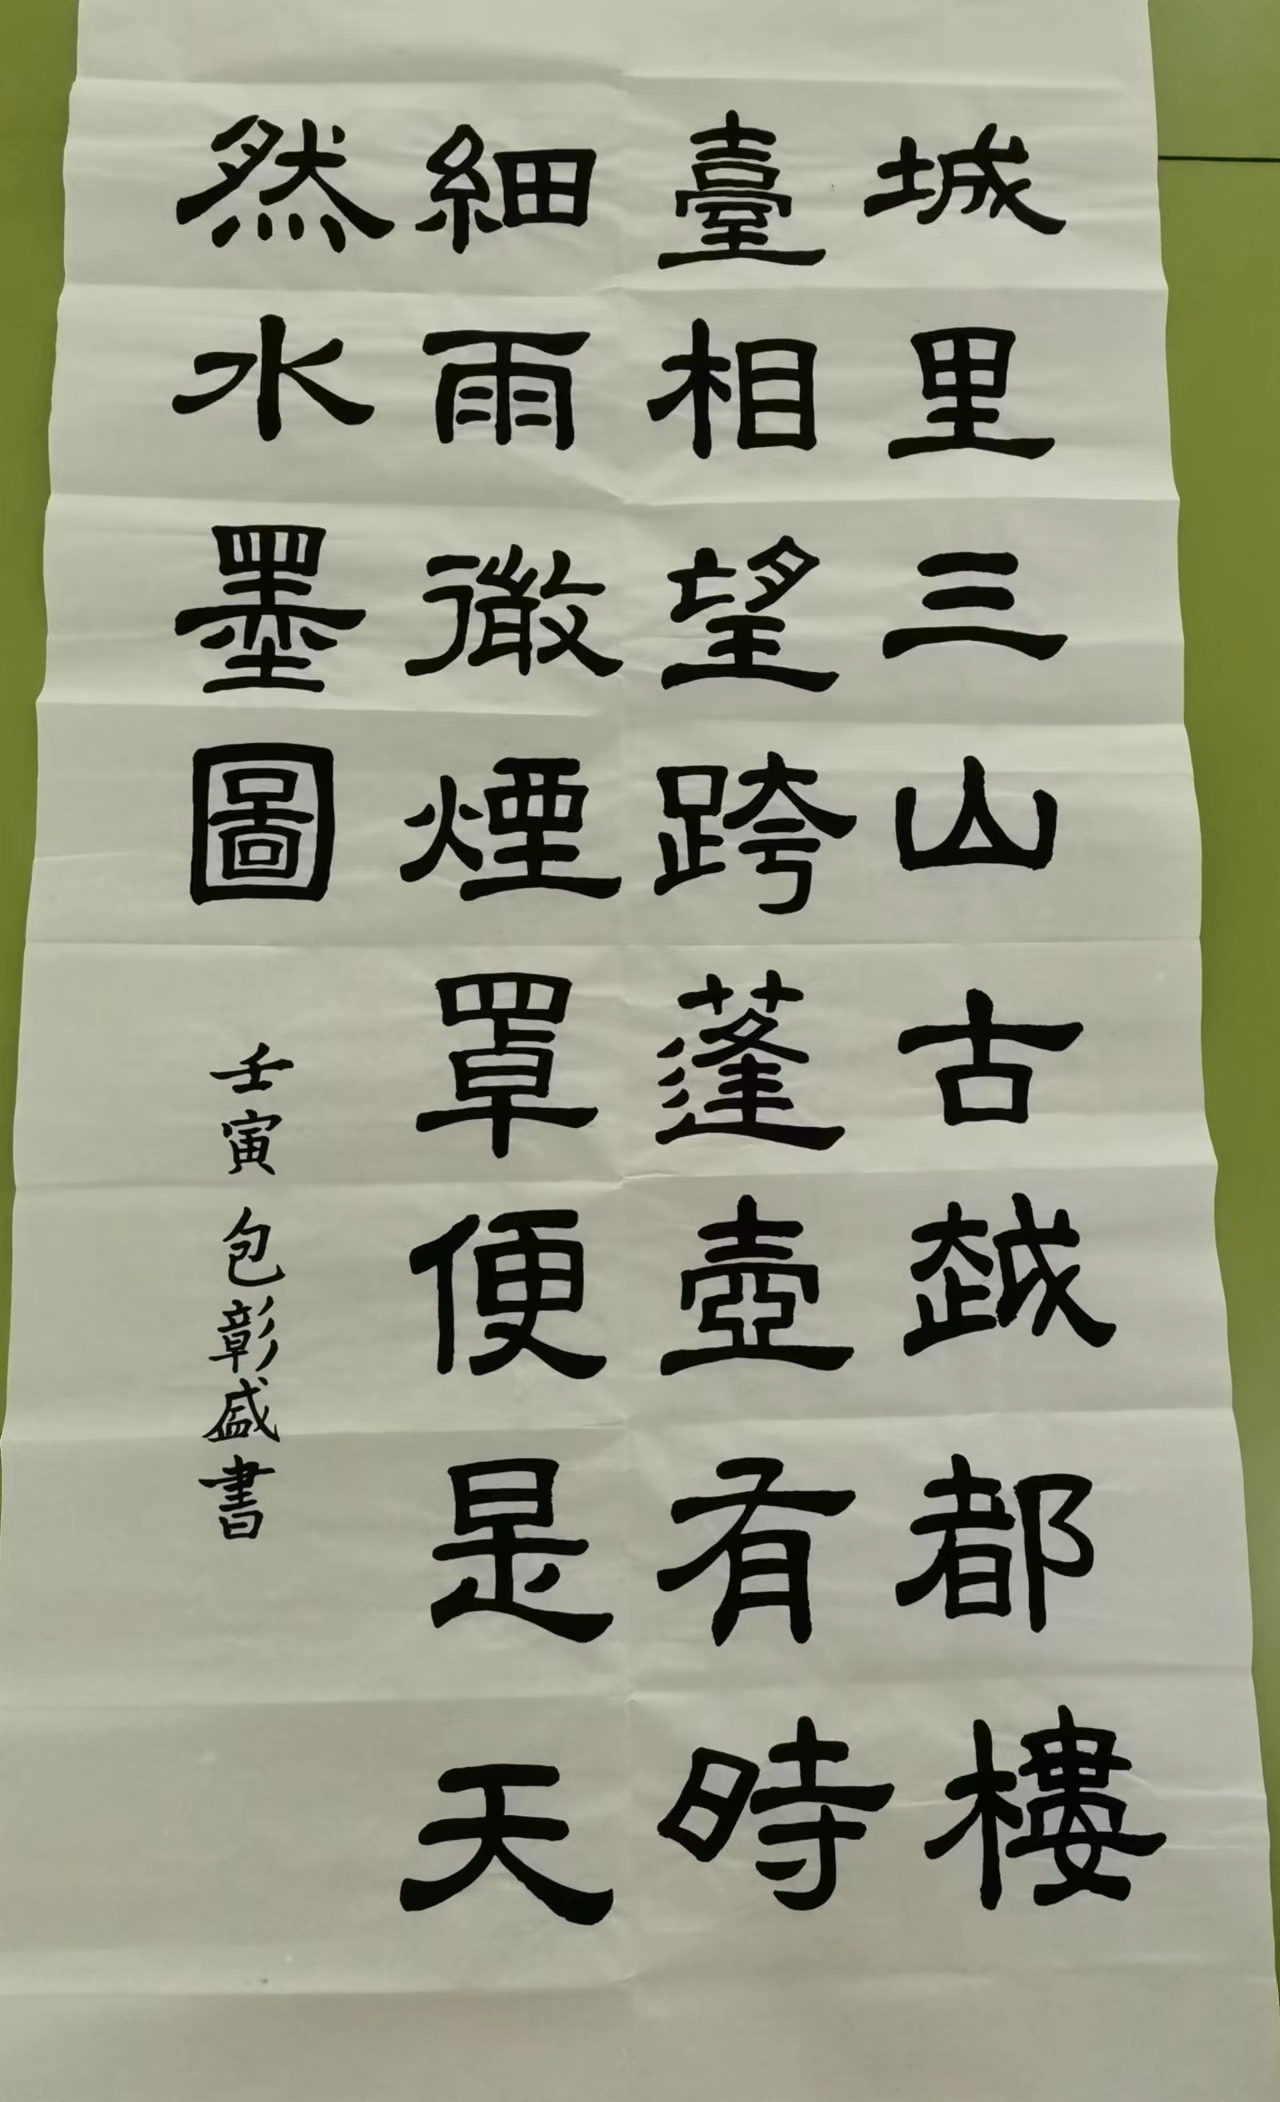 城里三山古越都樓
臺相望跨蓬壺有時
細雨微煙罩便是天
然水墨圖
壬寅包彰盛書